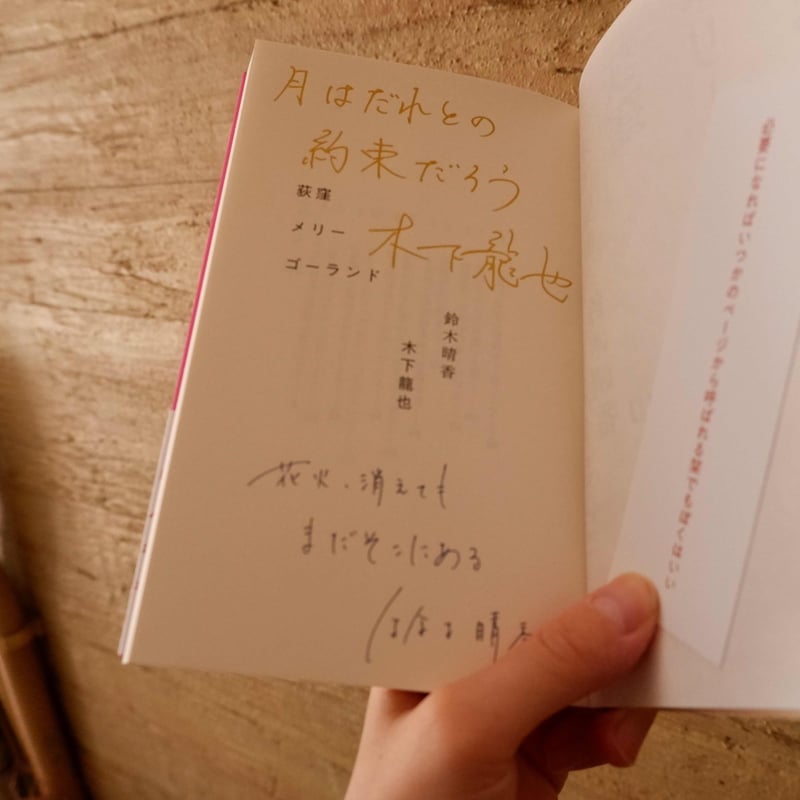 月はだれとの
約束だろう
木下龍也
荻窪
メリー
ゴーランド
鈴木晴香
木下龍也
花火、消えても
まだそこにある
晴香
必要になればいつかのページから呼ばれる栞でもぼくはいい